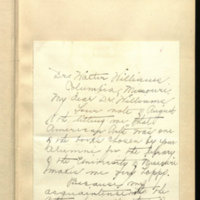 Dr. Walter Williams
Columbia, Missouri.
My dear Dr. Williams
Your note of August
8th telling me that
American Arts was one
of the books chosen by your
Committee for the Library
of the University of Missouri
makes me very happy.
Because my
acquaintance